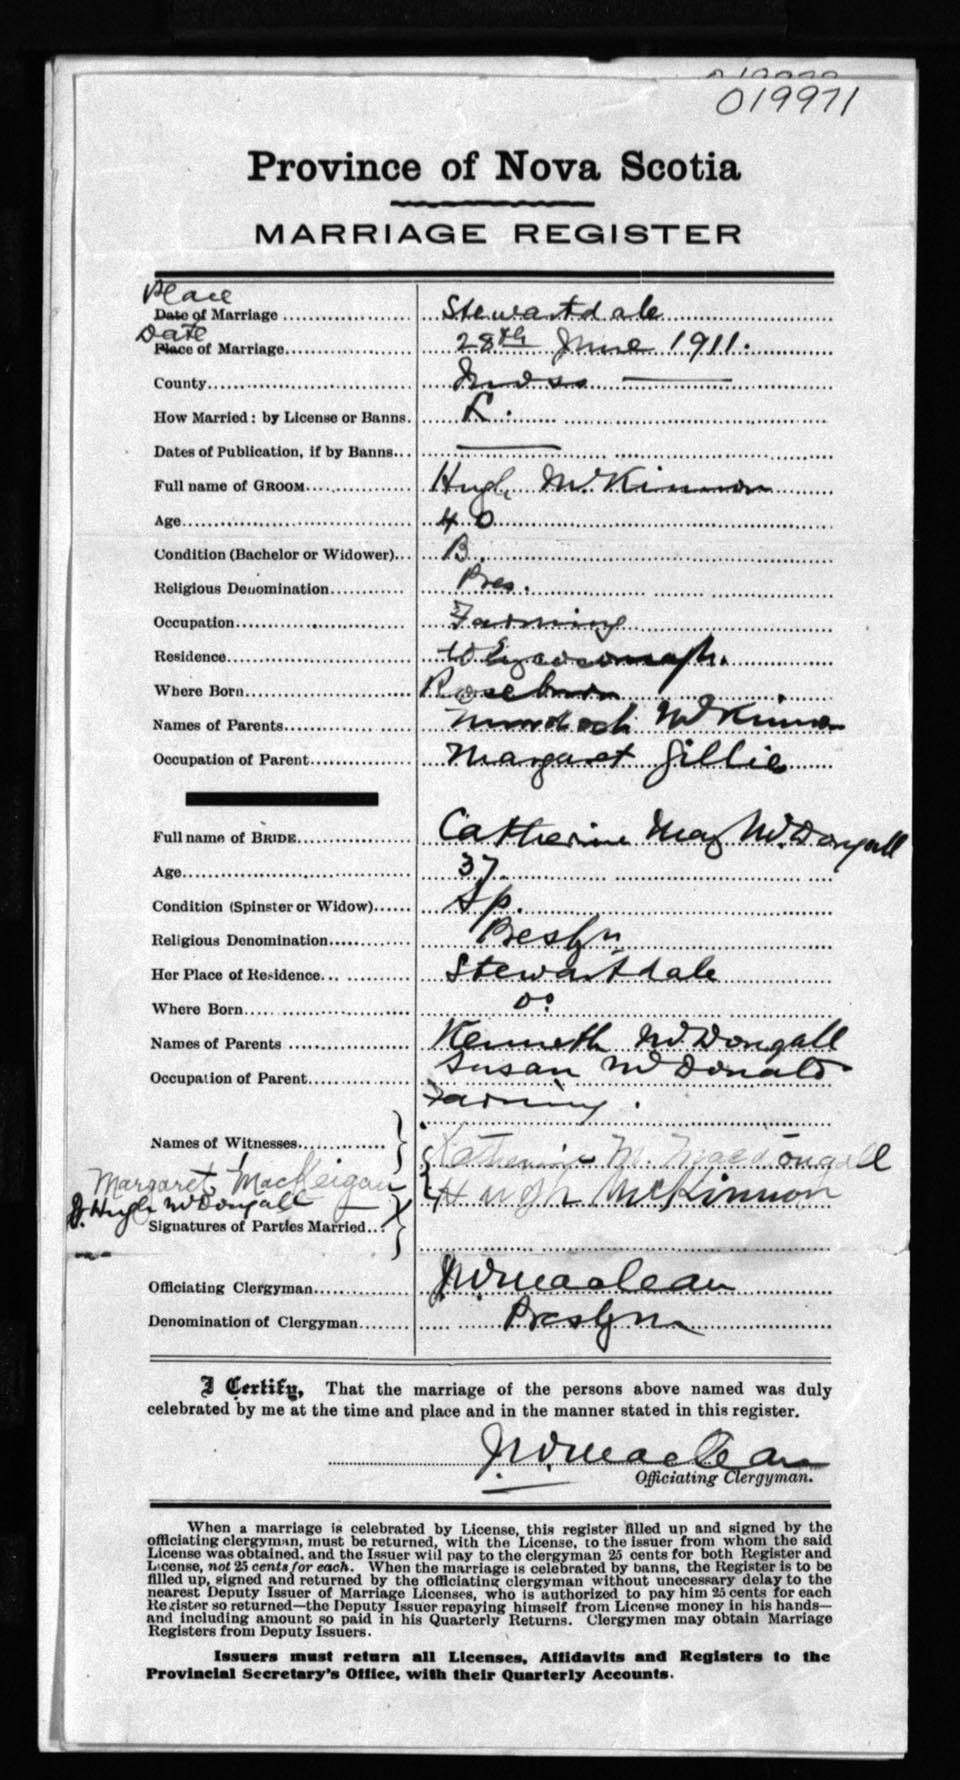 019971
Province of Nova Scotia
MARRIAGE REGISTER
Place
Date of Marriage Stewartdale
Date
Place of Marriage 28th June 1911.
County Inverness
How Married: by License or Banns. L.
Dates of Publication, if by Banns
Full name of GROOM Hugh McKinnon
Age 40
Condition (Bachelor or Widower) B.
Religious Denomination Pres.
Occupation Farming
Residence Whycocomagh.
Where Born Roseburn
Names of Parents Murdoch McKinnon
Occupation of Parent Margaret Gillis
Full name of BRIDE Catherine May McDongall
Age 37.
Condition (Spinster or Widow) Sp.
Religious Denomination Presbyn
Her Place of Residence Stewartdale
Where Born Do
Names of Parents Kenneth McDongall
Susan McDonald
Occupation of Parent
Farming.
Names of Witnesses Katherine M. Macdougall
Margaret MacKeigan Hugh McKinnon
D. Hugh McDongall
Signatures of Parties Married
Officiating Clergyman J.D. Maclean
Denomination of Clergyman Presbyn
I Certify, That the marriage of the persons above named was duly
celebrated by me at the time and place and in the manner stated in this register.
J.D. Maclean
Officiating Clergyman.
When a marriage is celebrated by License, this register filled up and signed by the
officiating clergyman, must be returned, with the License, to the issuer from whom the said
License was obtained, and the Issuer will pay to the clergyman 25 cents for both Register and
License, not 25 cents for each. When the marriage is celebrated by banns, the Register is to be
filled up, signed and returned by the officiating clergyman without unecessary delay to the
nearest Deputy Issuer of Marriage Licenses, who is authorized to pay him 25 cents for each
Register so returned—the Deputy Issuer repaying himself from License money in his hands—
and including amount so paid in his Quarterly Returns. Clergymen may obtain Marriage
Registers from Deputy Issuers.
Issuers must return all Licenses, Affidavits and Registers to the
Provincial Secretary's Office, with their Quarterly Accounts.